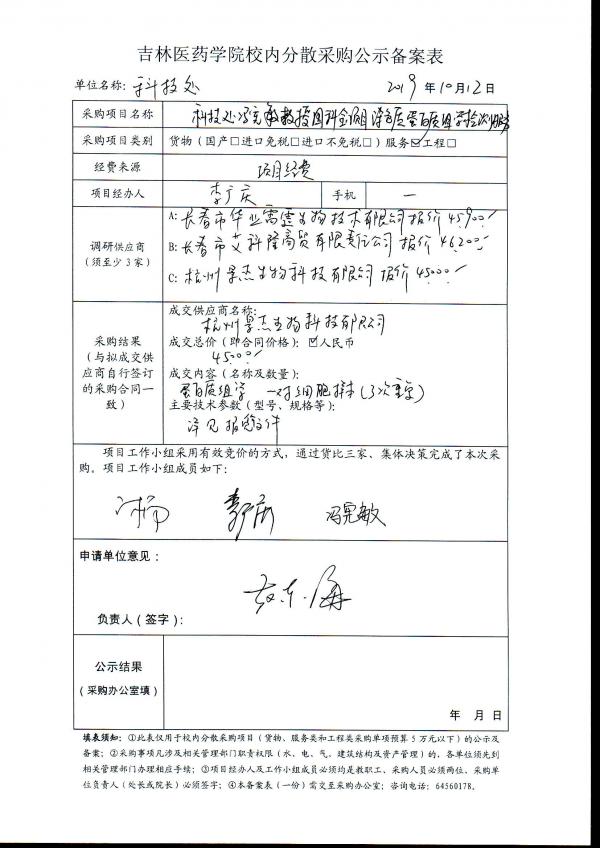 吉林医药学院校内分散采购公示备案表
单位名称：科技处 2019 年 10 月 12 日
采购项目名称 科技处冯宪敏教授国科金项目 蛋白质组学检测服务
采购项目类别 货物（国产□进口免税□进口不免税□）服务☑工程□
经费来源 项目经费
项目经办人 李广庆 手机 —
调研供应商
（须至少 3 家）
A: 长春市华业 生物技术有限公司 报价 45900/
B: 长春市艾科隆商贸有限责任公司 报价 46200/
C: 杭州景杰生物科技有限公司 报价 45000/
采购结果
（与拟成交供
应商自行签订
的采购合同一
致）
成交供应商名称：
杭州景杰生物科技有限公司
成交总价（即合同价格）：☑人民币
45000/
成交内容（名称及数量）：
蛋白质组学 一对细胞样本（3次重复）
主要技术参数（型号、规格等）：
详见报价文件
项目工作小组采用有效竞价的方式，通过货比三家、集体决策完成了本次采
购。项目工作小组成员如下：
冯宪敏
申请单位意见：
负责人（签字）：
公示结果
（采购办公室填）
年 月 日
填表须知：①此表仅用于校内分散采购项目（货物、服务类和工程类采购单项预算 5 万元以下）的公示及
备案；②采购事项凡涉及相关管理部门职责权限（水、电、气、建筑结构及资产管理）的，各单位须先到
相关管理部门办理相应手续；③项目经办人及工作小组成员必须均是教职工、采购人员必须两位，采购单
位负责人（处长或院长）必须签字；④本备案表（一份）需交至采购办公室；咨询电话：64560178。